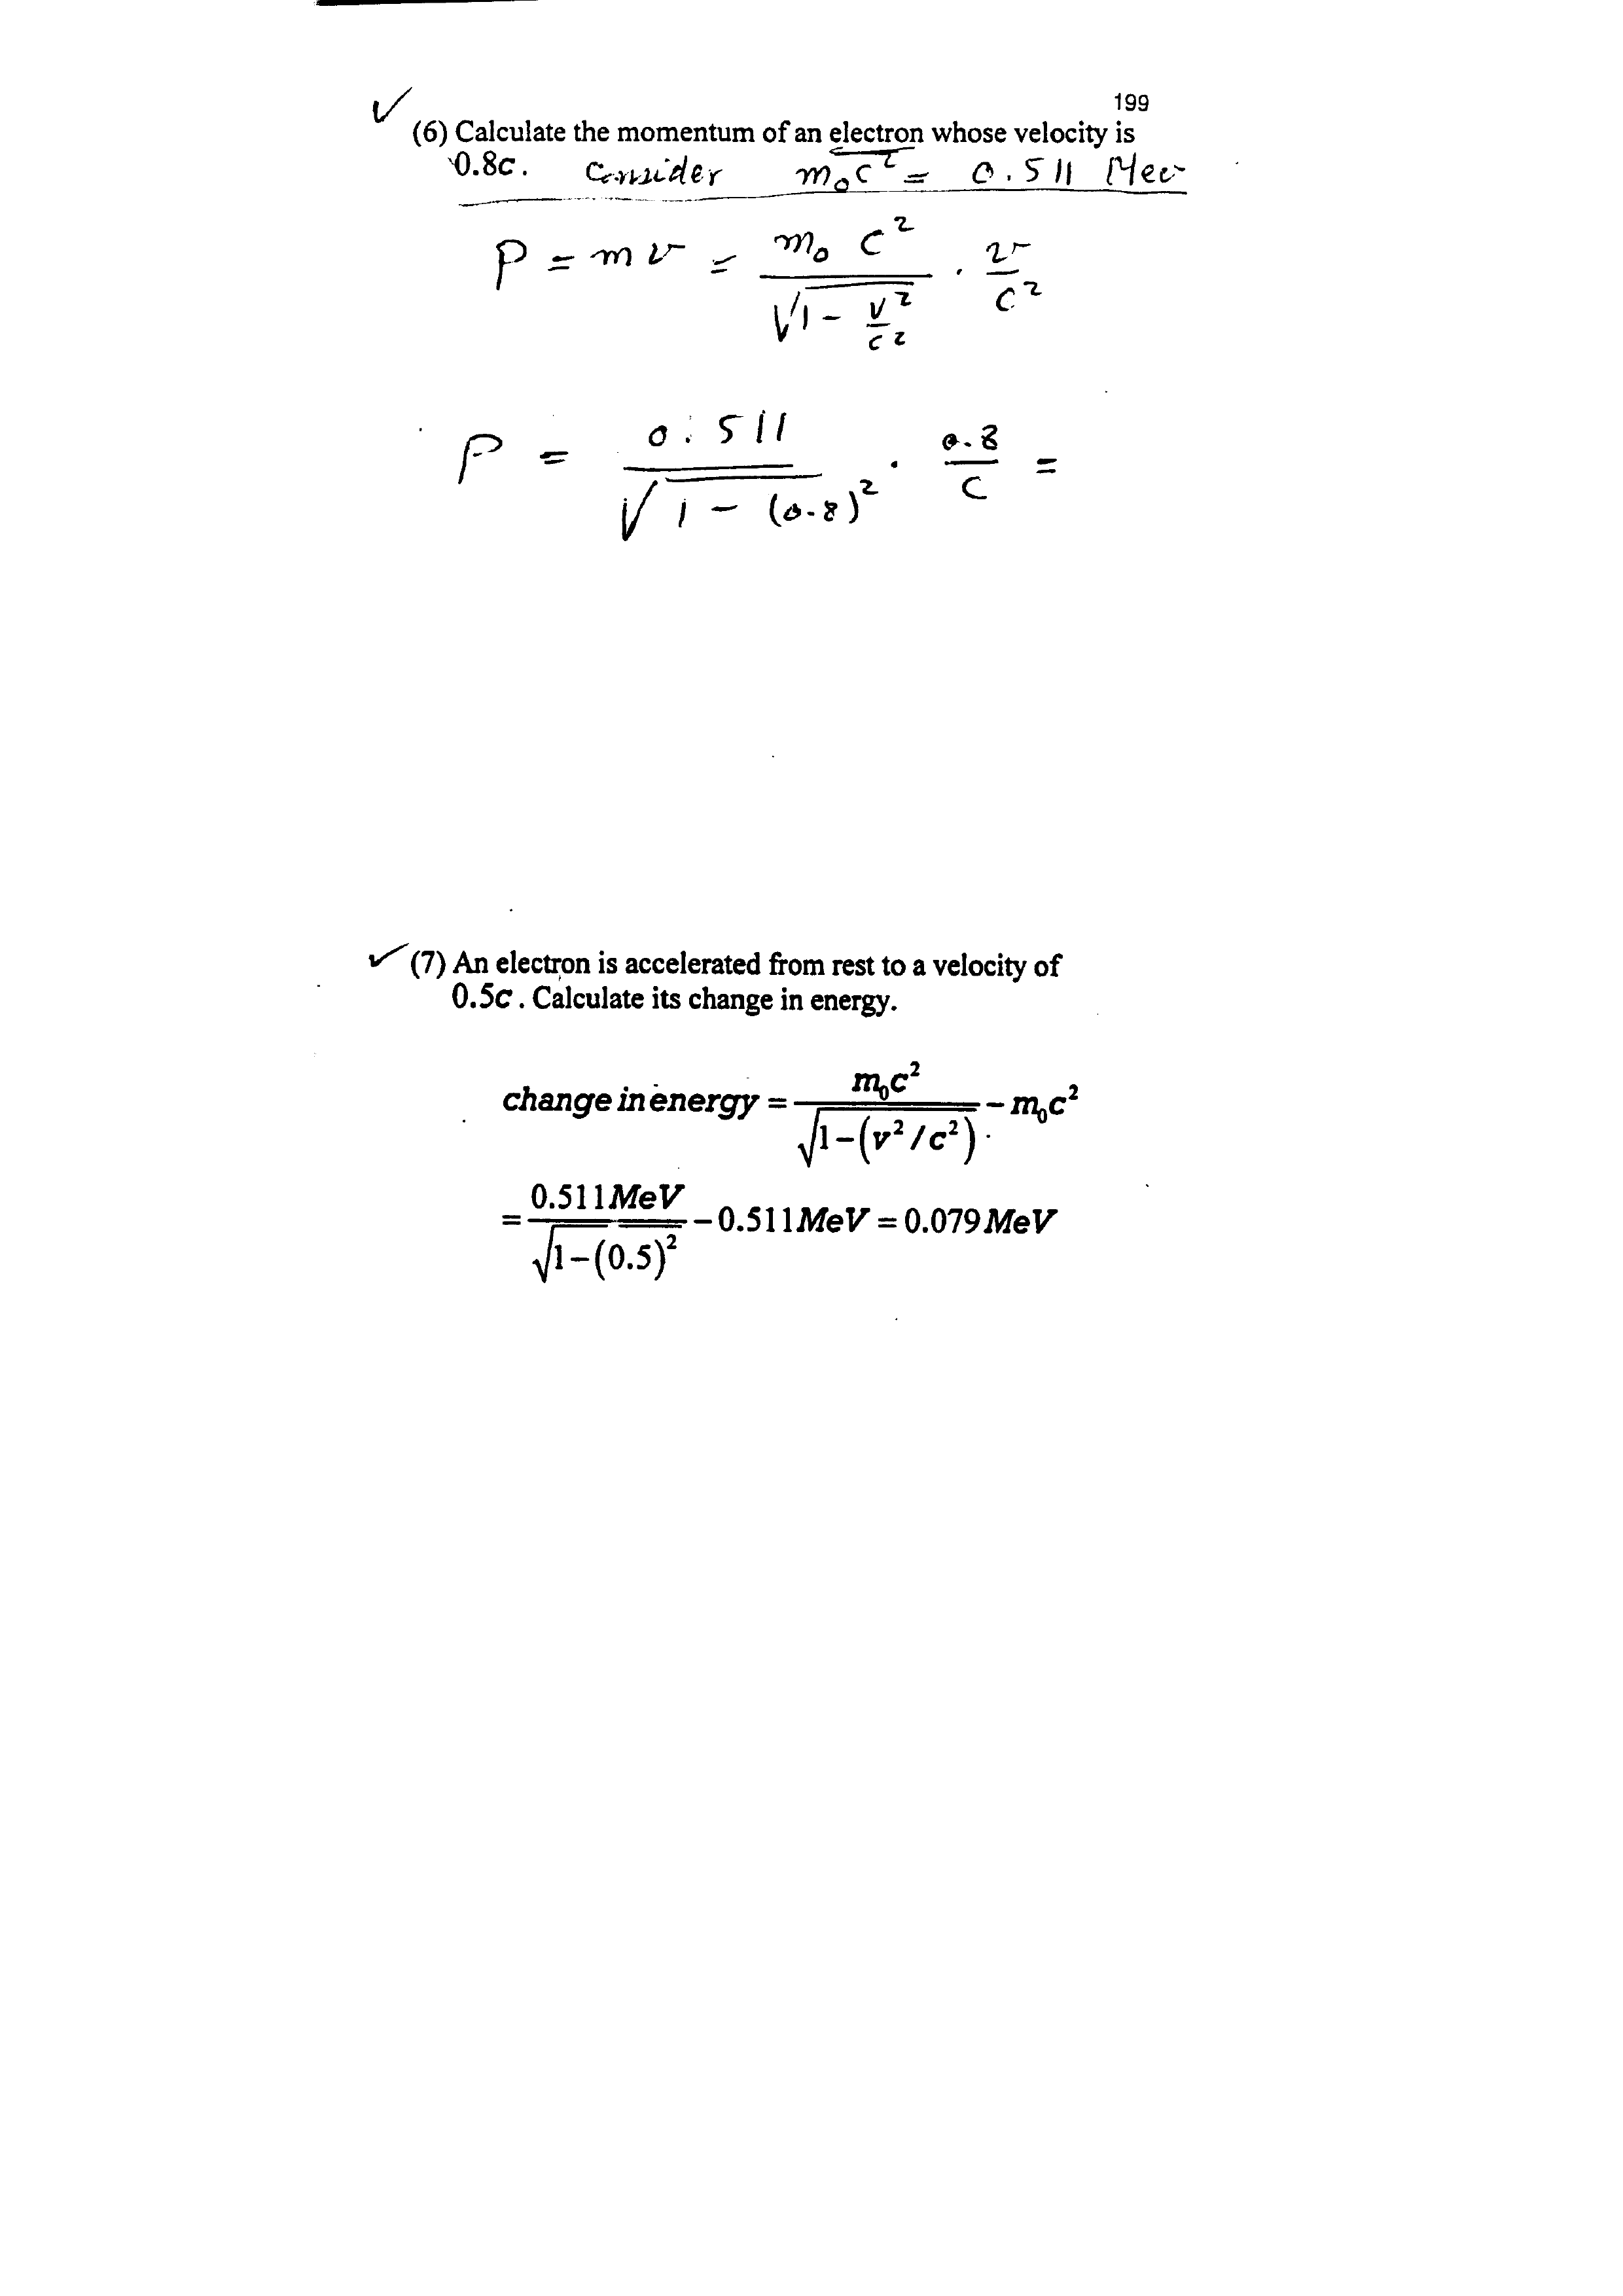 199
(6) Calculate the momentum of an electron whose velocity is
0.8c. Consider m₀c² = 0.511 Mev
P = mv = m₀ c² / √(1 - v²/c²) . v/c²
P = 0.511 / √(1 - (0.8)²) . 0.8/c =
(7) An electron is accelerated from rest to a velocity of
0.5c. Calculate its change in energy.
change in energy = m₀c² / √(1-(v²/c²)) - m₀c²
= 0.511MeV / √(1-(0.5)²) - 0.511MeV = 0.079MeV